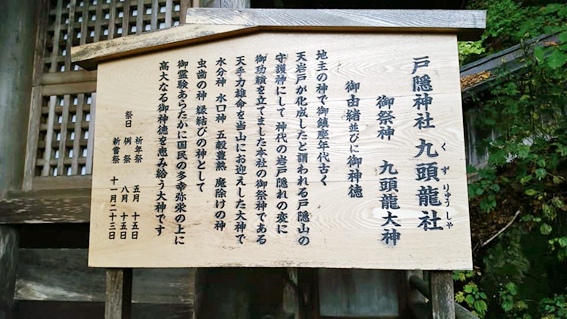 戸隠神社 九頭龍社
くずりゅうしゃ
御祭神 九頭龍大神
御由緒並びに御神徳
地主の神で御鎮座年代古く
天岩戸が化成したと謂われる戸隠山の
守護神にして神代の岩戸隠れの変に
御功績を立てました本社の御祭神である
天手力雄命を当山にお迎えした大神で
水分神 水口神 五穀豊熟 魔除けの神
虫歯の神 縁結びの神として
御霊験あらたかに国民の多幸弥栄の上に
高大なる御神徳を恵み給う大神です
祭日 祈年祭 五月十五日
例祭 八月十五日
新嘗祭 十一月二十三日